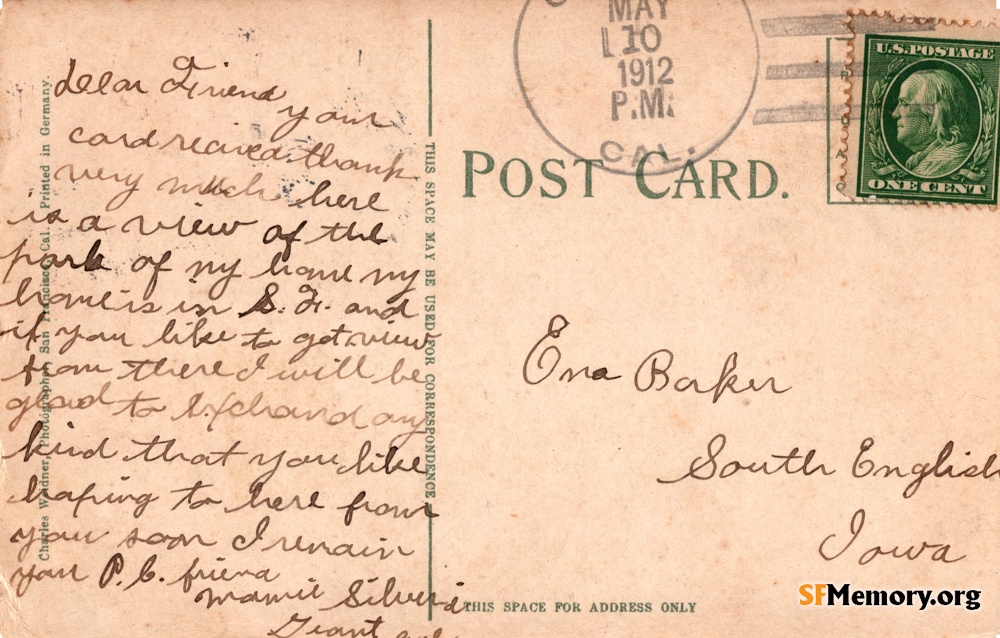 dear Friend
your
card recived thank
very much here
is a view of the
park of my home my
home is in S. F. and
if you like to get view
from there I will be
glad to exchand any
kind that you like
hoping to here from
you soon I remain
your P. C. friend
Mamie Silveria
Charles Weidner, Photographer, San Francisco, Cal. Printed in Germany.
THIS SPACE MAY BE USED FOR CORRESPONDENCE
MAY
10
1912
P.M.
CAL.
U.S. POSTAGE
ONE CENT
POST CARD.
Ena Baker
South English
Iowa
THIS SPACE FOR ADDRESS ONLY
SFMemory.org